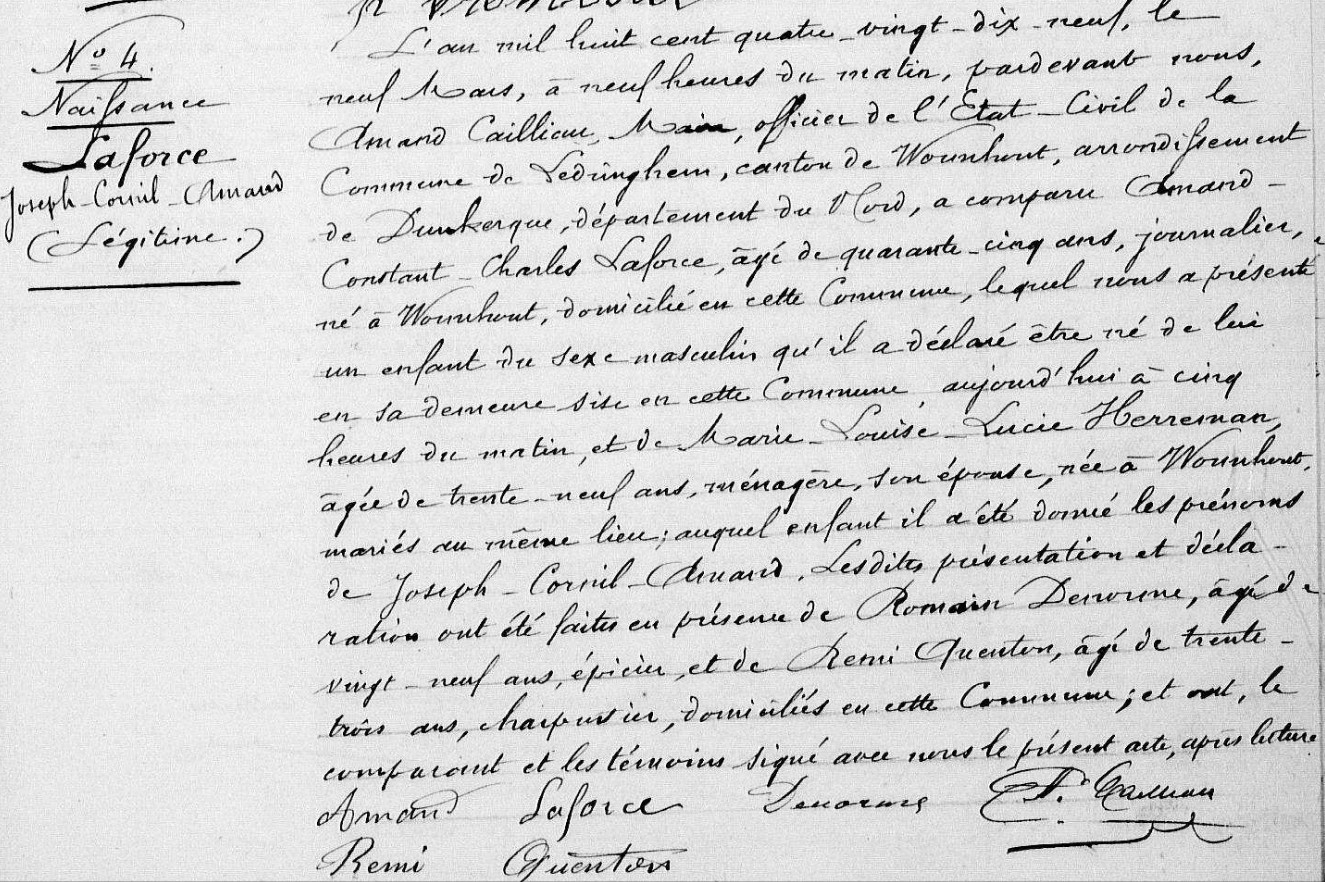 N° 4.
Naissance
Laforce
Joseph-Cornil-Amand
(Légitime.)
L'an mil huit cent quatre-vingt-dix-neuf, le
neuf Mars, à neuf heures du matin, pardevant nous,
Amand Cailliau, Maire, officier de l'État-Civil de la
Commune de Ledringhem, canton de Wormhout, arrondissement
de Dunkerque, département du Nord, a comparu Amand-
Constant-Charles Laforce, âgé de quarante-cinq ans, journalier,
né à Wormhout, domicilié en cette Commune, lequel nous a présenté
un enfant du sexe masculin qu'il a déclaré être né de lui
en sa demeure sise en cette Commune aujourd'hui à cinq
heures du matin, et de Marie-Louise-Lucie Herreman,
âgée de trente-neuf ans, ménagère, son épouse, née à Wormhout,
mariés au même lieu; auquel enfant il a été donné les prénoms
de Joseph-Cornil-Amand. Lesdites présentation et décla-
ration ont été faites en présence de Romain Denorme, âgé de
vingt-neuf ans, épicier, et de Remi Quenton, âgé de trente-
trois ans, charpentier, domiciliés en cette Commune; et ont, le
comparant et les témoins signé avec nous le présent acte, après lecture.
Amand Laforce Denorme A. Cailliau
Remi Quenton